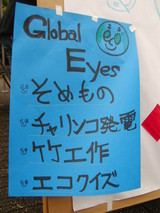 Global
Eyes
そめもの
チャリンコ発電
竹工作
エコクイズ